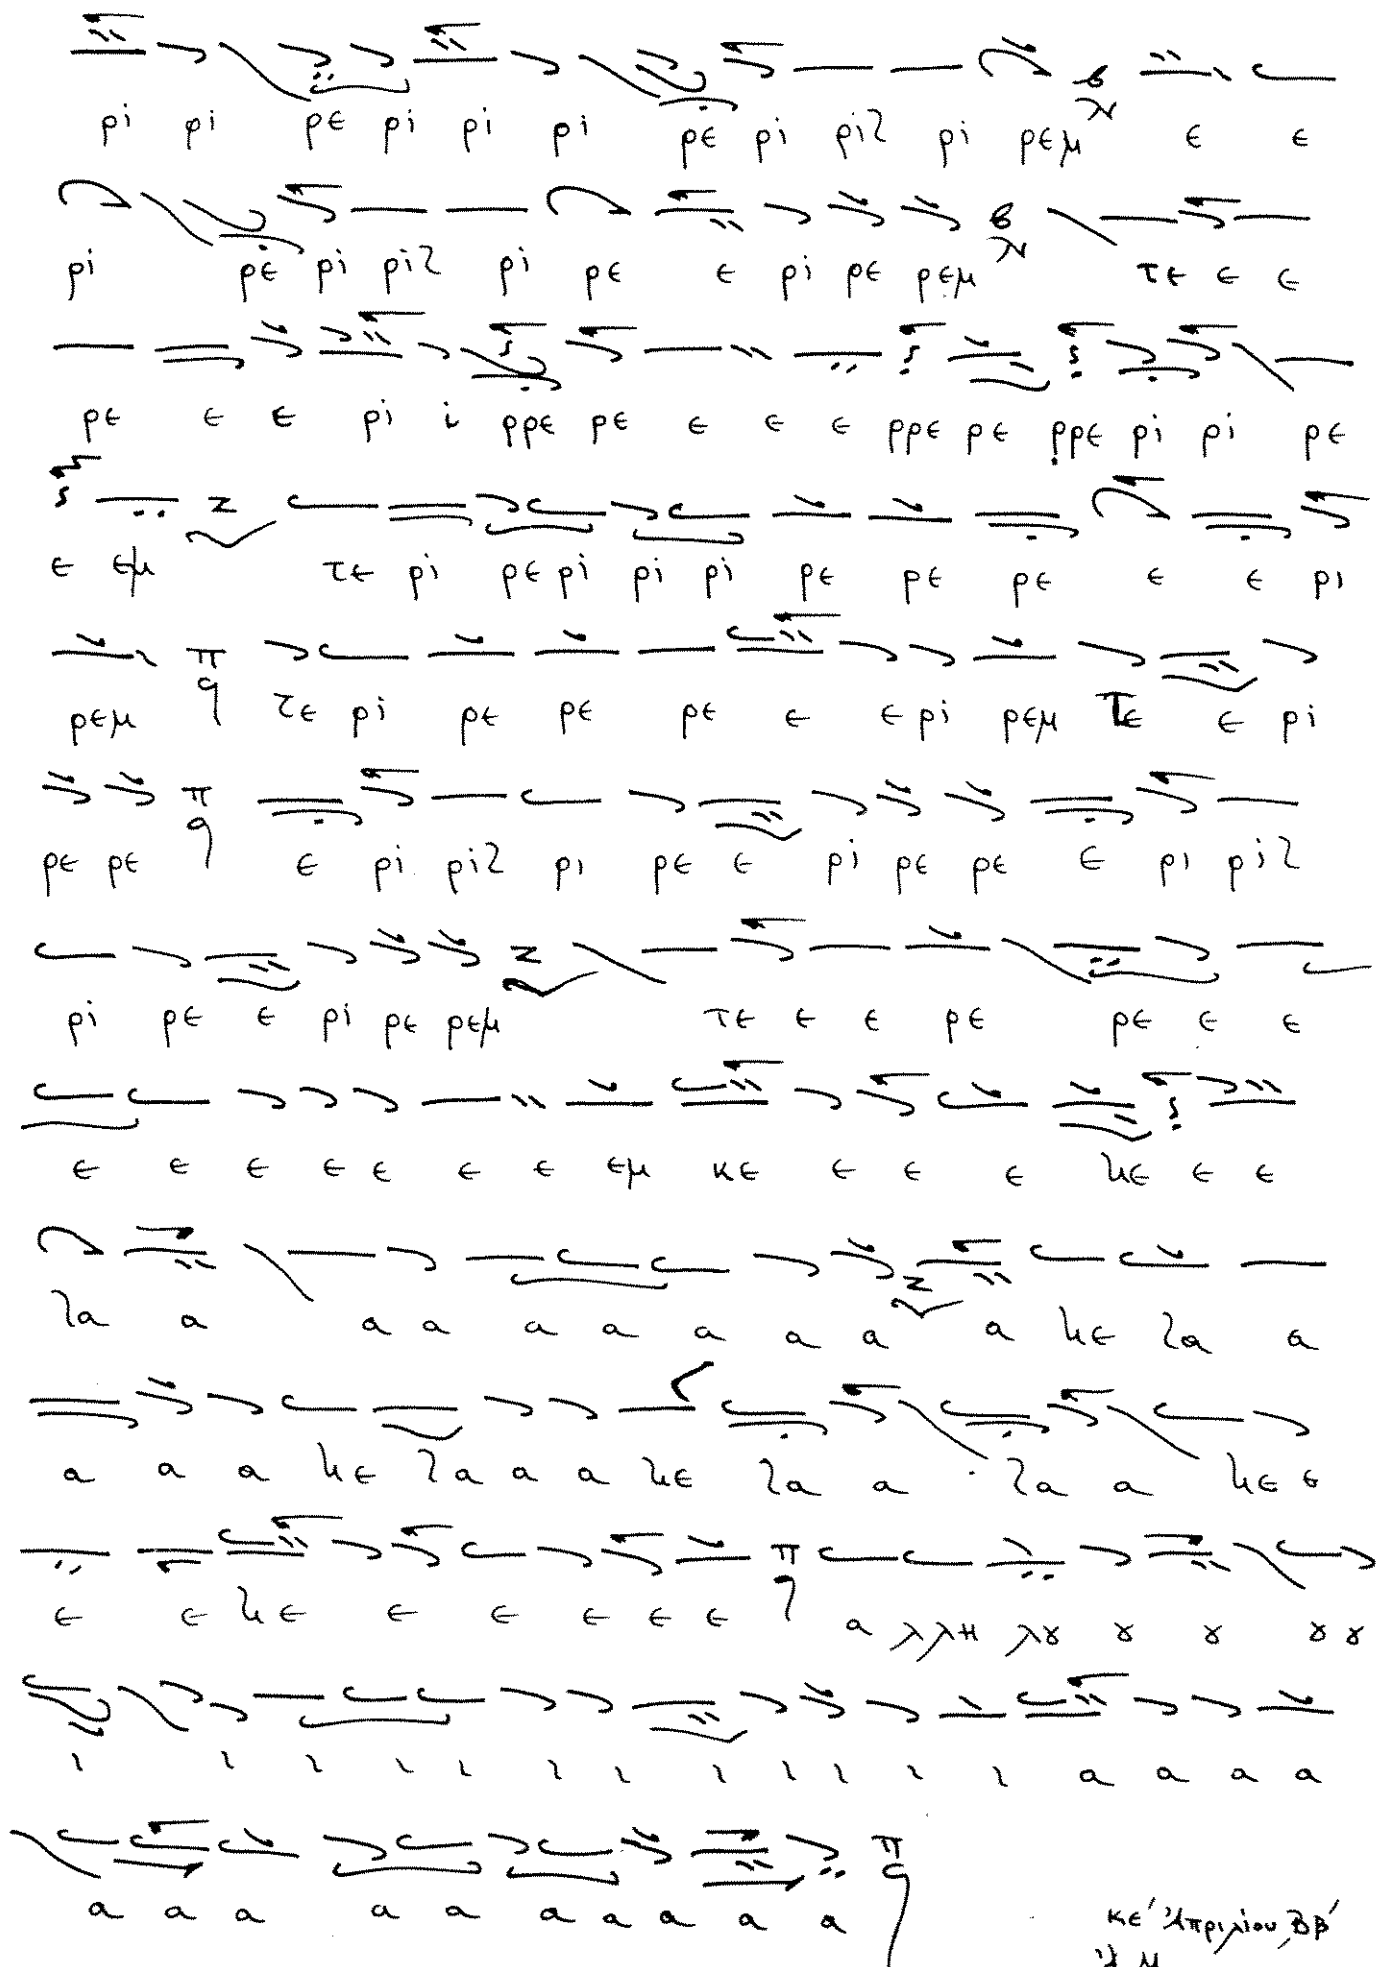 ρι ρι ρε ρι ρι ρι ρε ρι ριζ ρι ρεμ ε ε
ρι ρε ρι ριζ ρι ρε ε ρι ρε ρεμ τε ε ε
ρε ε ε ρι ι ρρε ρε ε ε ε ρρε ρε ρρε ρι ρι ρε
ε εμ τε ρι ρε ρι ρι ρι ρε ρε ρε ε ε ρι
ρεμ π τε ρι ρε ρε ρε ε ε ρι ρεμ τε ε ρι
ρε ρε π ε ρι ριζ ρι ρε ε ρι ρε ρε ε ρι ριζ
ρι ρε ε ρι ρε ρεμ τε ε ε ρε ρε ε ε
ε ε ε ε ε ε ε εμ κε ε ε ε χε ε ε
λα α α α α α α α α α χε λα α
α α α χε λα α α χε λα α λα α χε ε
ε ε χε ε ε ε ε ε π α λλη λȣ ȣ ȣ ȣ ȣ
ι ι ι ι ι ι ι ι ι ι ι ι α α α α
α α α α α α α α α α π
κε΄ Ἀπριλίου ͵Ββ΄